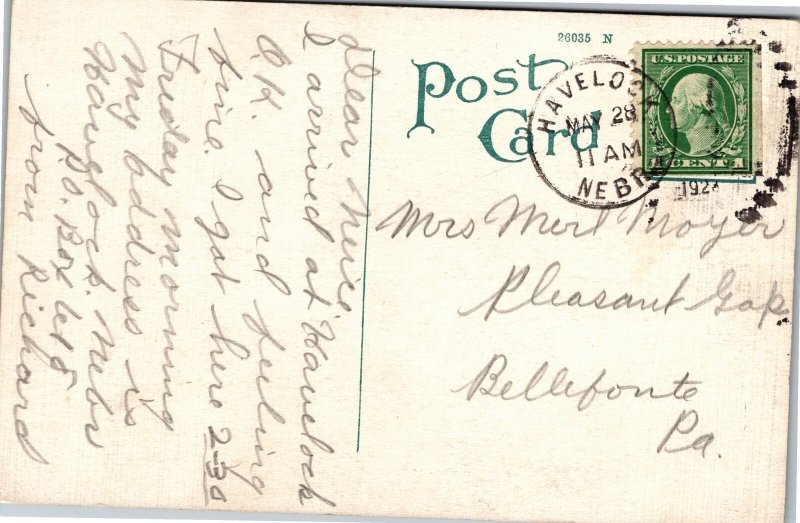 26035 N
Post
Card
HAVELOCK
MAY 28
11 AM
NEBR
192
U.S. POSTAGE
1 CENTS 1
Mrs Merl Moyer
Pleasant Gap
Bellefonte
Pa.
Dear Neice,
I arrived at Havelock
O.K. and feeling
fine. I got here 2-30
Friday morning
My address is
Havelock. Nebr
P.O. Box 618
from Richard